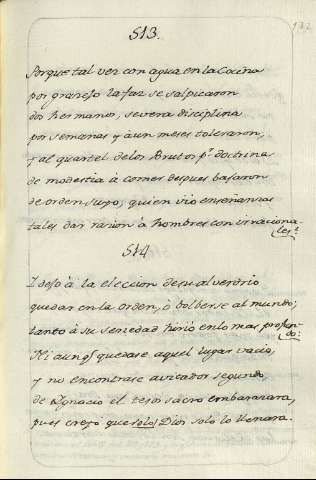 132
513.
Porque tal vez con agua en la Cocina
por gracejo la faz se salpicaron
dos hermanos, severa disciplina
por semanas y aun meses toleraron,
y al quartel de los Brutos pr. doctrina
de modestia à comer despues bajaron
de orden suyo; quien vio enseñanzas
tales dar razion à hombres con irraciona-
les?
514
I dejò à la eleccion de su alverdrio
quedar en la orden, ò bolberse al mundo;
tanto à su seriedad hirio en lo mas profun-
do:
Ni aunq̃ quedase aquel lugar vacio,
y no encontrase avitador segundo,
de Ygnacio el tesos sacro embarazara,
pues creyò que solo Dios solo lo llenara.